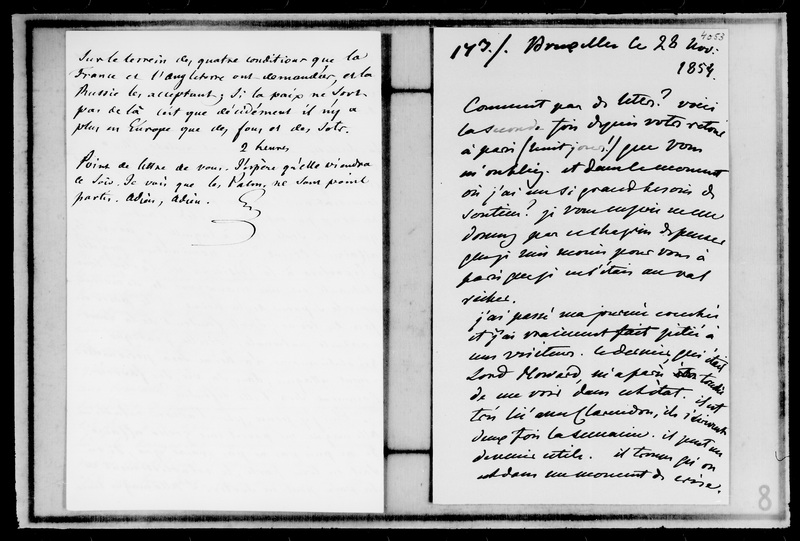 Sur le terrein des quatre conditions que la
France et l'Angleterre ont demandées, et la
Russie les acceptant; si la paix ne sort
pas de là c'est que décidément il n'y a
plus en Europe que des fous et des sots.
2 heures
Point de lettre de vous. J'espère qu'elle viendra
ce soir. Je vois que les Palm. ne sont point
partis. Adieu, adieu.
4053
147/. Bruxelles le 28 Nov.
1854.
Comment pas de lettre? voici
la seconde fois depuis votre retour
à paris (huit jours!) que vous
m'oubliez. et dans le moment
où j'ai un si grand besoin de
soutien? je vous supplie de ne me
donner pas ce chagrin de penser
que je suis moins pour vous à
paris que je n'étais au val
richer.
j'ai passé ma journée couchée
et j'ai vraiment fait pitié à
mes visiteurs. le dernier qui était
Lord Howard m'a paru touché
de me voir dans cet état. il est
très lié avec Clarendon, ils s'écrivent
deux fois la semaine. il peut m
devenir utile. il trouve qu'on
est dans un moment de crise.
8